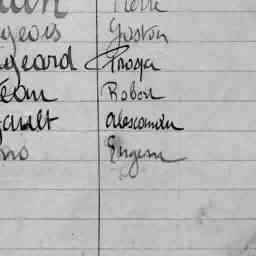 Pierre
geois Gaston
geard
éan Robert
gault Alexandre
no Eugene